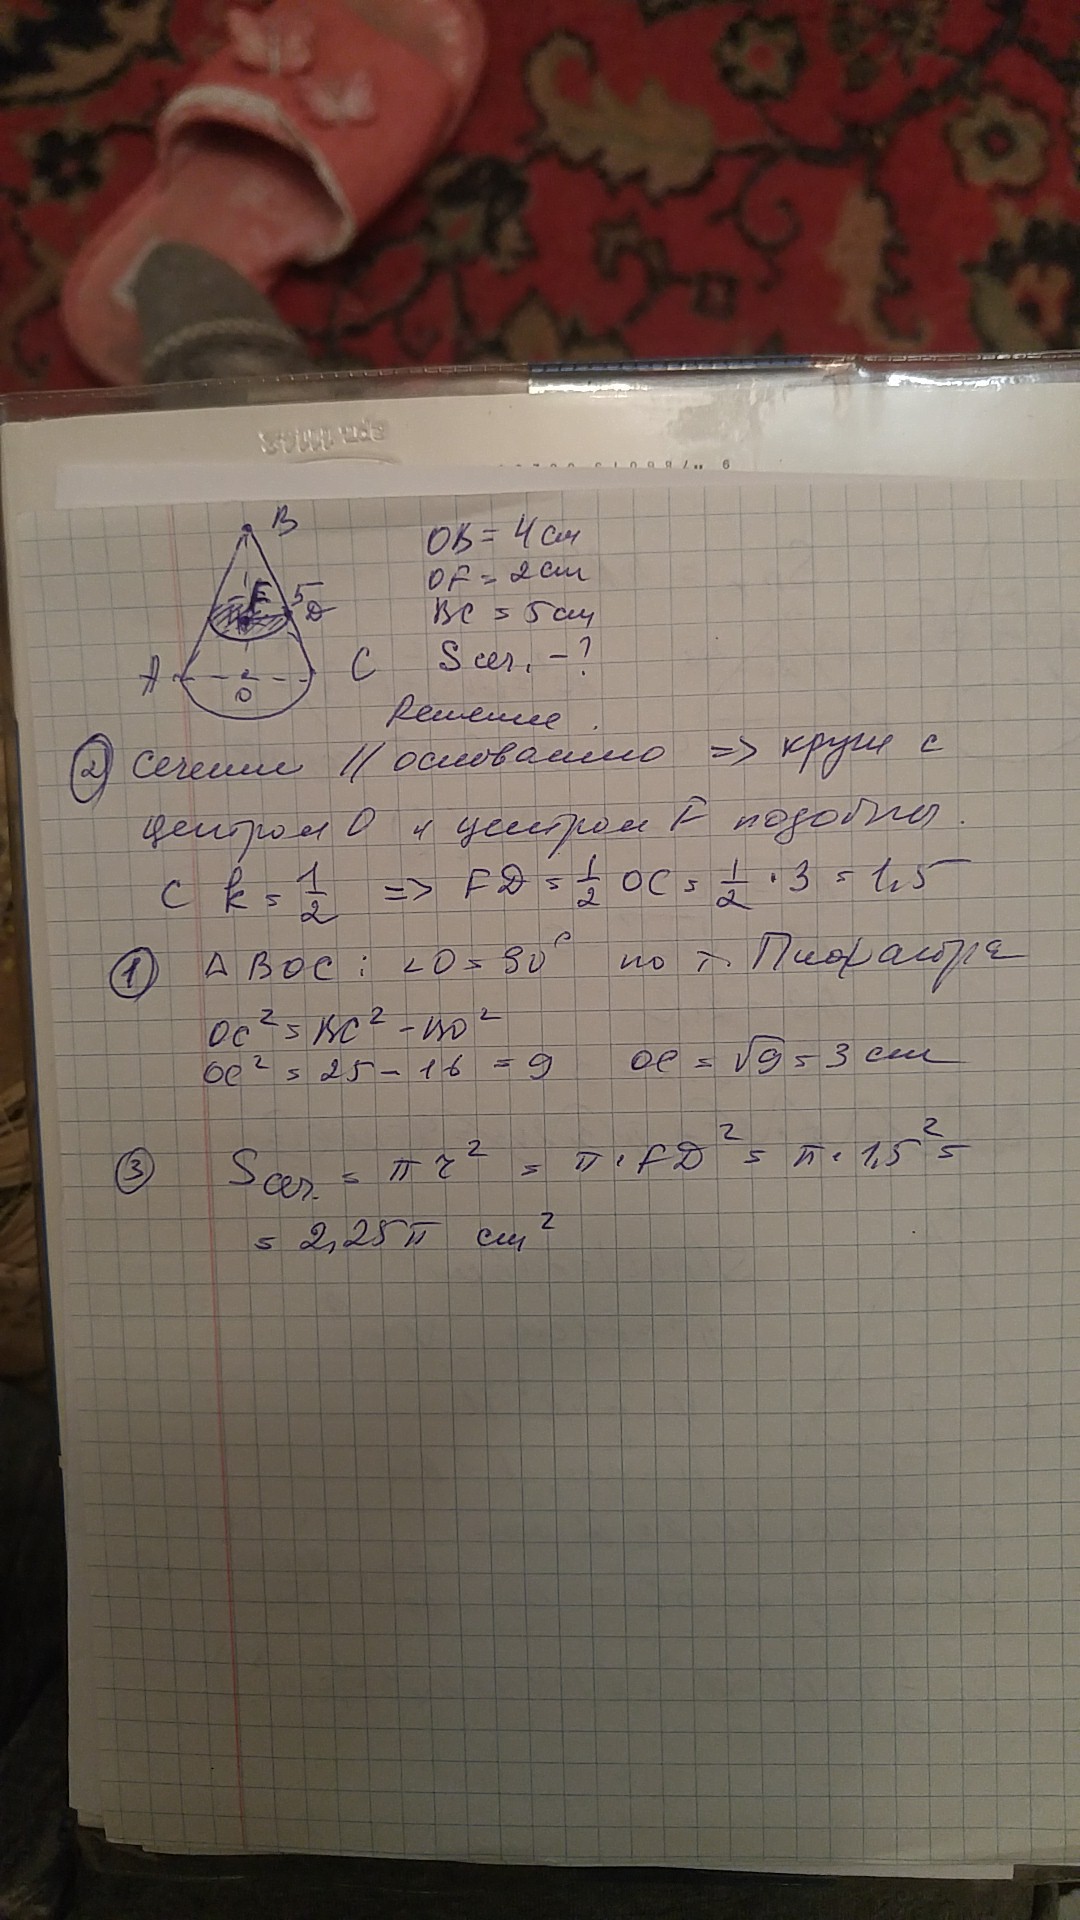 B
F 5
D
A C
O
OB = 4 см
OF = 2 см
BC = 5 см
S сеч. - ?
Решение.
② Сечение // основанию => круги с
центром O и центром F подобны.
С k = 1/2 => FD = 1/2 OC = 1/2 · 3 = 1,5
① Δ BOC : ∠O = 90° по т. Пифагора
OC² = BC² - BO²
OC² = 25 - 16 = 9 OC = √9 = 3 см
③ Sсеч. = π r² = π · FD² = π · 1,5² =
= 2,25π см²